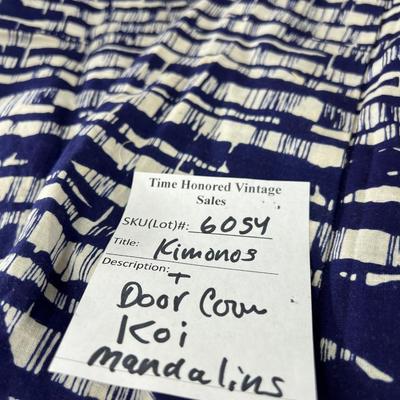 Time Honored Vintage
Sales
SKU(Lot)#: 6054
Title: Kimonos
Description: +
Door Cover
Koi
mandalins